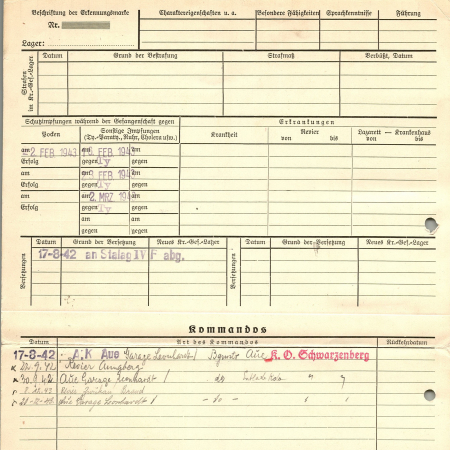 Beschriftung der Erkennungsmarke Charaktereigenschaften u. a. Besondere Fähigkeiten Sprachkenntnisse Führung
Nr.
Lager:
Strafen im Kr.-Gef.-Lager Datum Grund der Bestrafung Strafmaß Verbüßt, Datum
Schutzimpfungen während der Gefangenschaft gegen Erkrankungen
Pocken Sonstige Impfungen (Ty.-Paratyp., Ruhr, Cholera usw.) Krankheit Revier von bis Lazarett — Krankenhaus von bis
am 2 FEB 1943 am FEB 194 am
Erfolg gegen Ty gegen
am am FEB 194 am
Erfolg gegen Ty gegen
am am 2. MRZ 194 am
Erfolg gegen Ty gegen
am am
gegen gegen
am am
gegen gegen
Versetzungen Datum Grund der Versetzung Neues Kr.-Gef.-Lager Versetzungen Datum Grund der Versetzung Neues Kr.-Gef.-Lager
17-8-42 an Stalag IV F abg.
Kommandos
Datum Art des Kommandos Rückkehrdatum
17-8-42 A.K Aue Garage Leonhardt Aue K. O. Schwarzenberg
9. 42 Revier
30.9.42 Aue Garage Leonhardt do
Aue Garage Leonhardt do